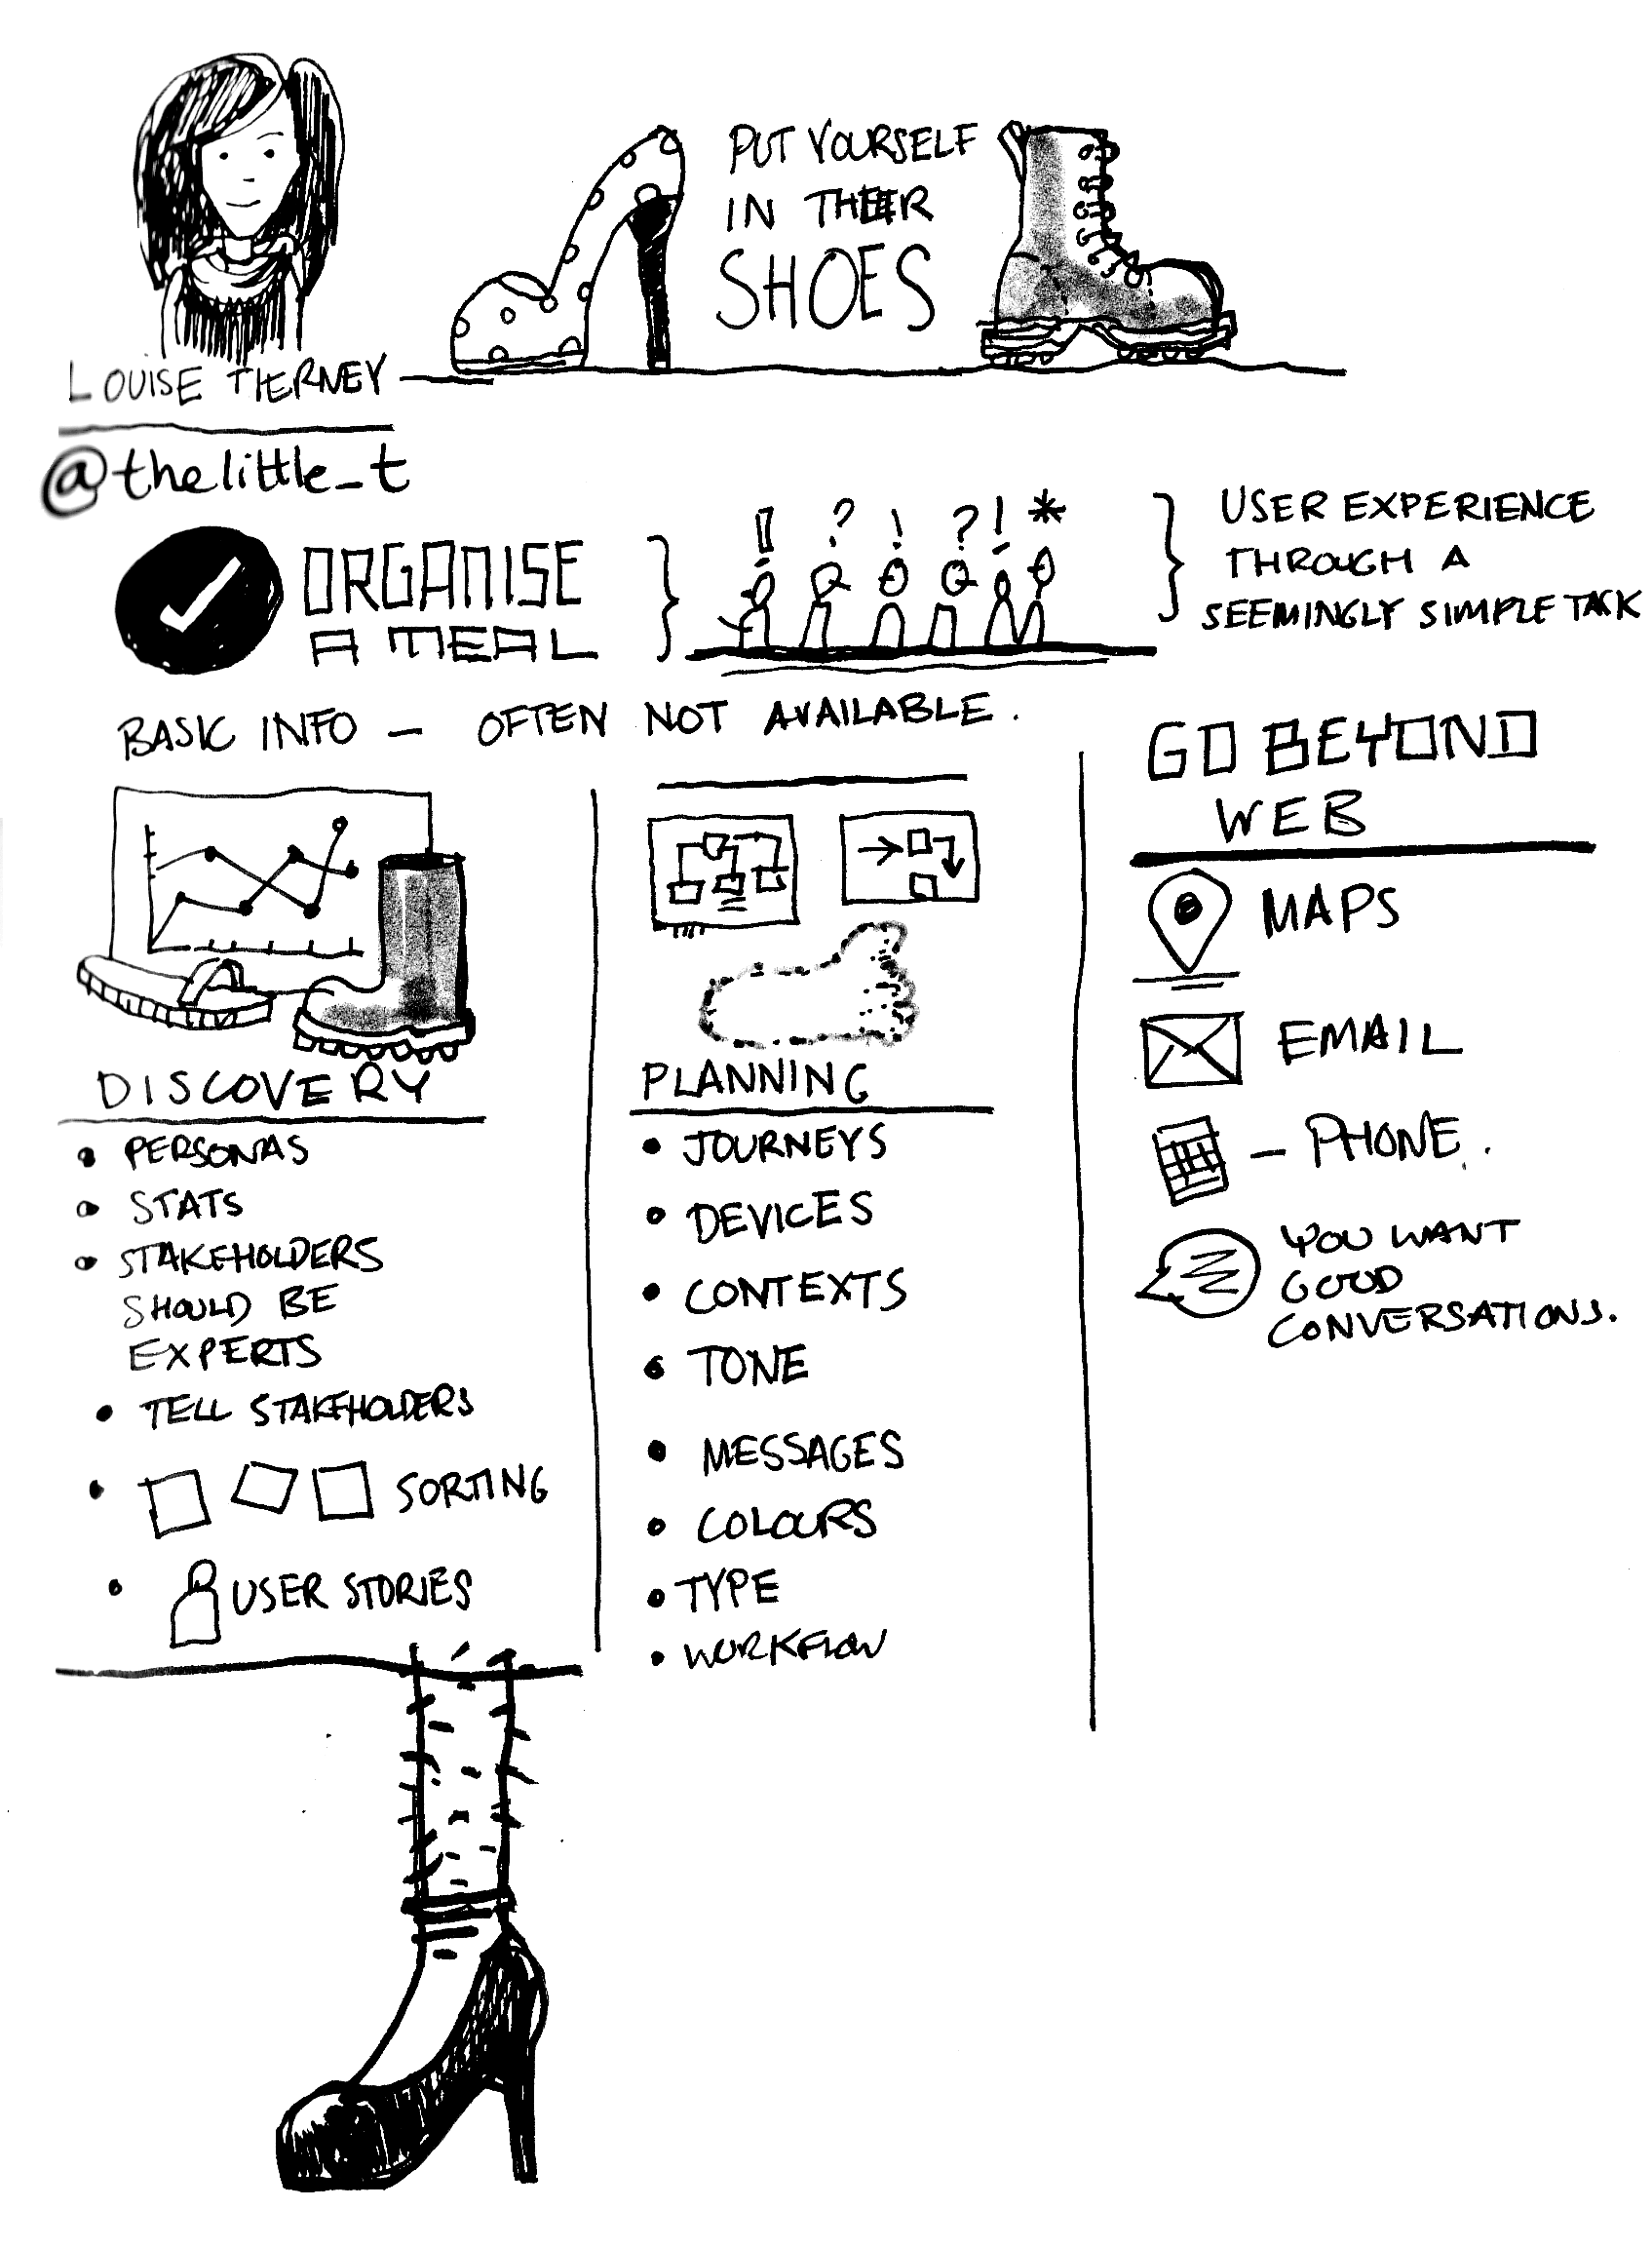 PUT YOURSELF
IN THEIR
SHOES
LOUISE TIERNEY
@thelittle_t
ORGANISE
A MEAL
! ? ! ? ! *
USER EXPERIENCE
THROUGH A
SEEMINGLY SIMPLE TASK
BASIC INFO – OFTEN NOT AVAILABLE.
DISCOVERY
• PERSONAS
• STATS
• STAKEHOLDERS
SHOULD BE
EXPERTS
• TELL STAKEHOLDERS
• SORTING
• USER STORIES
PLANNING
• JOURNEYS
• DEVICES
• CONTEXTS
• TONE
• MESSAGES
• COLOURS
• TYPE
• WORKFLOW
GO BEYOND
WEB
MAPS
EMAIL
– PHONE.
YOU WANT
GOOD
CONVERSATIONS.